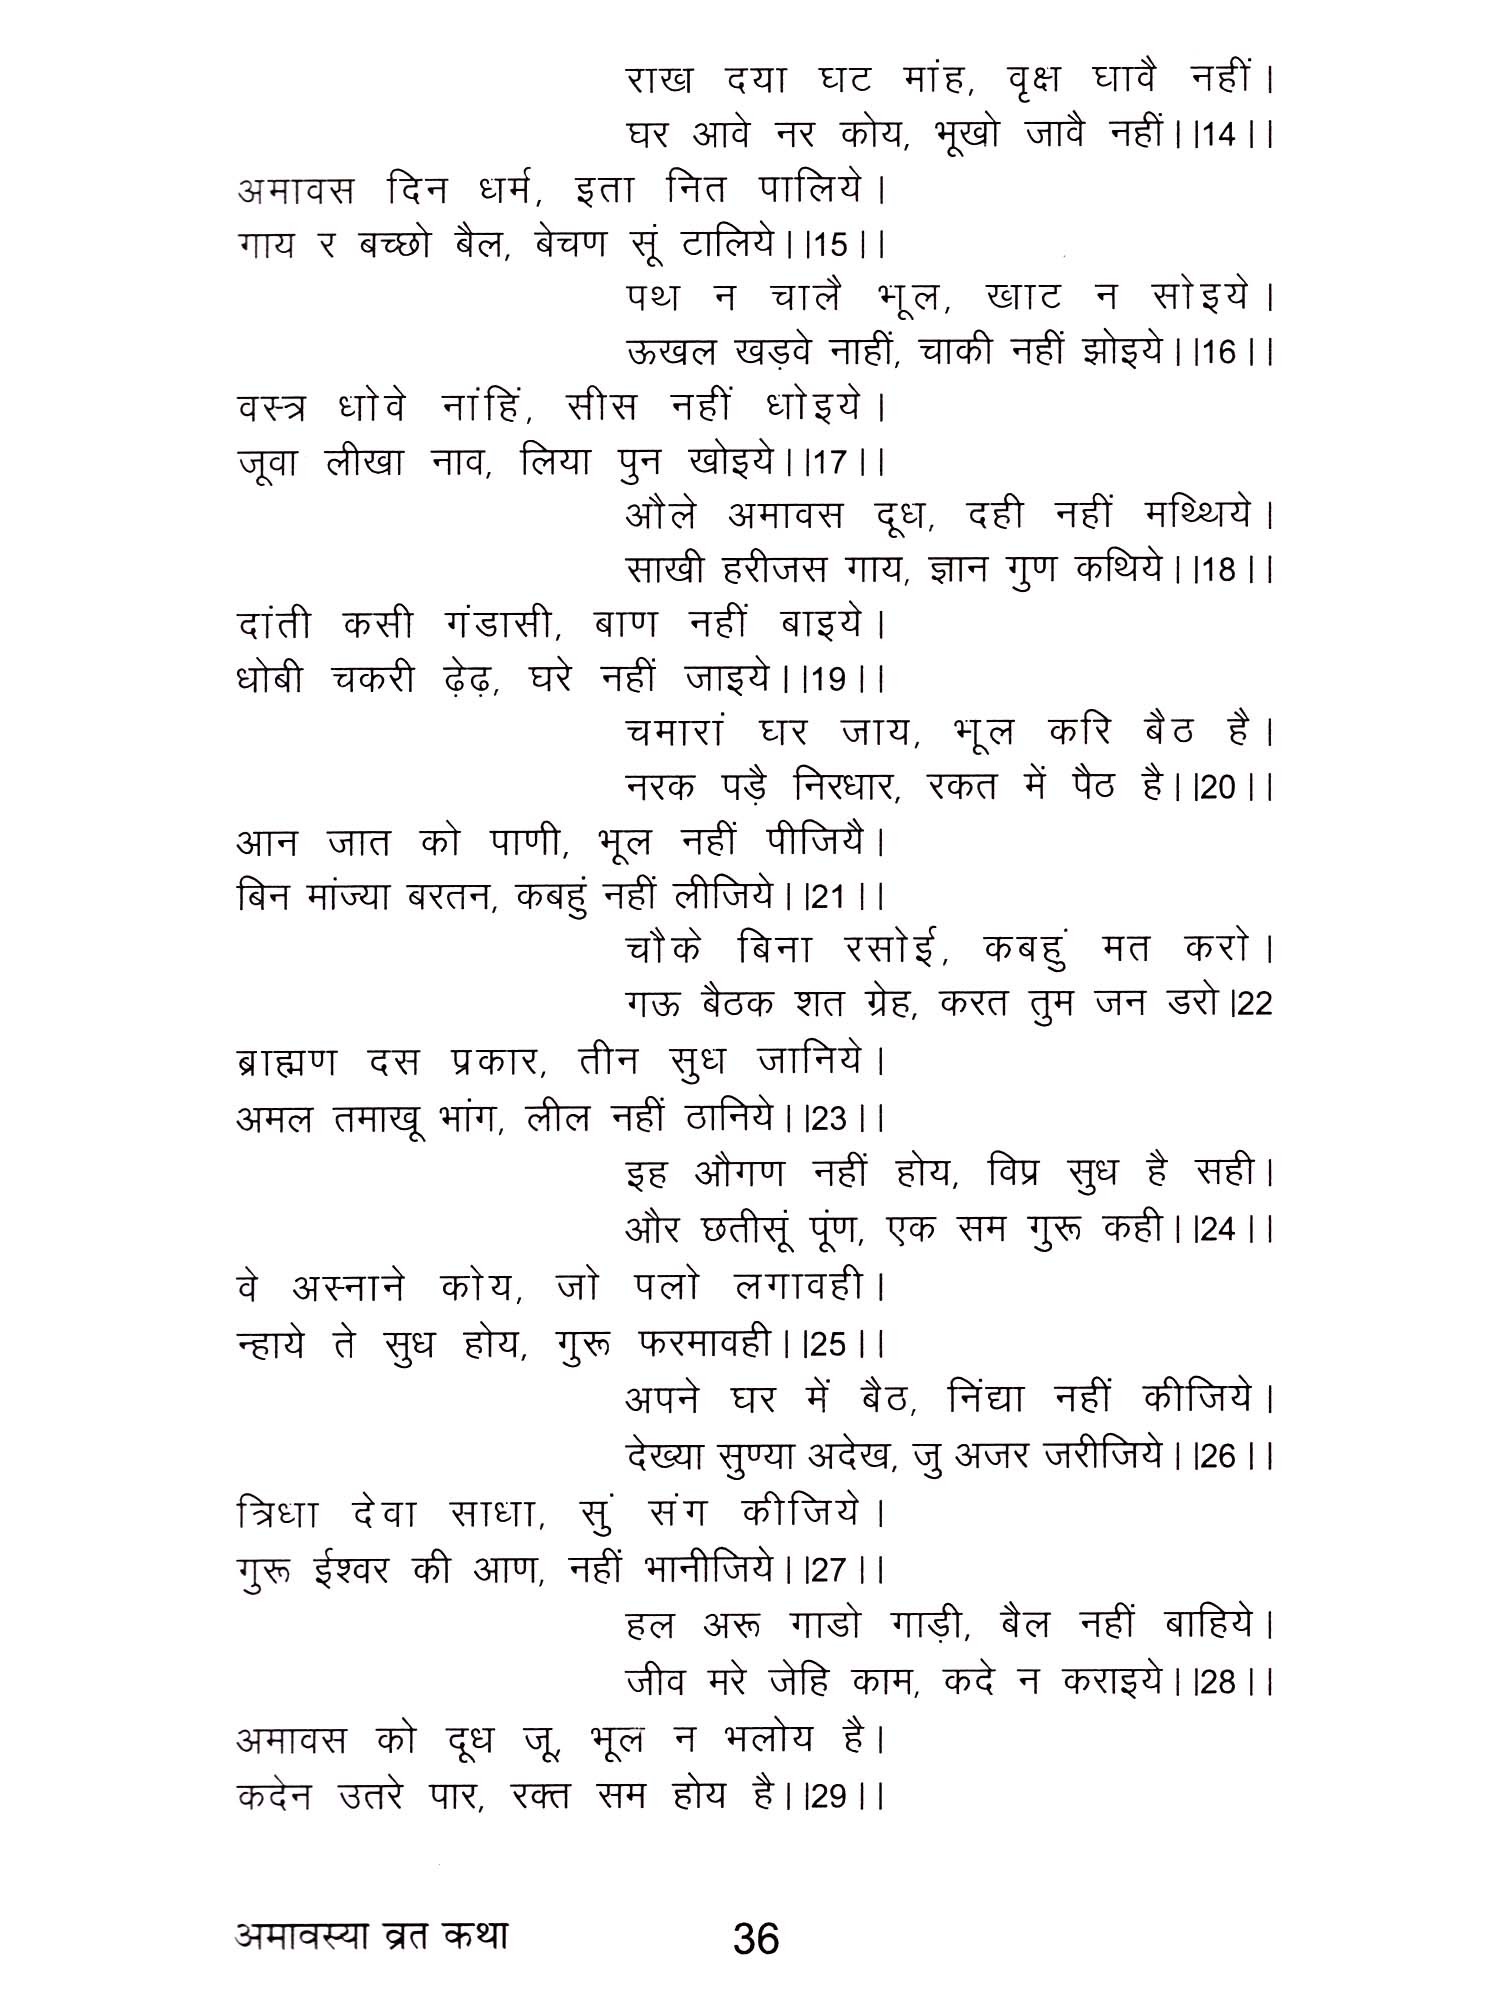 राख दया घट मांह, वृक्ष घावै नहीं।
घर आवे नर कोय, भूखो जावै नहीं।।14।।
अमावस दिन धर्म, इता नित पालिये।
गाय र बच्छो बैल, बेचण सूं टालिये।।15।।
पथ न चालै भूल, खाट न सोइये।
ऊखल खड़वे नाहीं, चाकी नहीं झोइये।।16।।
वस्त्र धोवे नांहिं, सीस नहीं धोइये।
जूवा लीखा नाव, लिया पुन खोइये।।17।।
औले अमावस दूध, दही नहीं मथ्थिये।
साखी हरीजस गाय, ज्ञान गुण कथिये।।18।।
दांती कसी गंडासी, बाण नहीं बाइये।
धोबी चकरी ढ़ेढ़, घरे नहीं जाइये।।19।।
चमारां घर जाय, भूल करि बैठ है।
नरक पड़ै निरधार, रकत में पैठ है।।20।।
आन जात को पाणी, भूल नहीं पीजियै।
बिन मांज्या बरतन, कबहुं नहीं लीजिये।।21।।
चौके बिना रसोई, कबहुं मत करो।
गऊ बैठक शत ग्रेह, करत तुम जन डरो।22
ब्राह्मण दस प्रकार, तीन सुध जानिये।
अमल तमाखू भांग, लील नहीं ठानिये।।23।।
इह औगण नहीं होय, विप्र सुध है सही।
और छतीसूं पूंण, एक सम गुरू कही।।24।।
वे अस्नाने कोय, जो पलो लगावही।
न्हाये ते सुध होय, गुरू फरमावही।।25।।
अपने घर में बैठ, निंद्या नहीं कीजिये।
देख्या सुण्या अदेख, जु अजर जरीजिये।।26।।
त्रिधा देवा साधा, सुं संग कीजिये।
गुरू ईश्वर की आण, नहीं भानीजिये।।27।।
हल अरू गाडो गाड़ी, बैल नहीं बाहिये।
जीव मरे जेहि काम, कदे न कराइये।।28।।
अमावस को दूध जू, भूल न भलोय है।
कदेन उतरे पार, रक्त सम होय है।।29।।
अमावस्या व्रत कथा 36